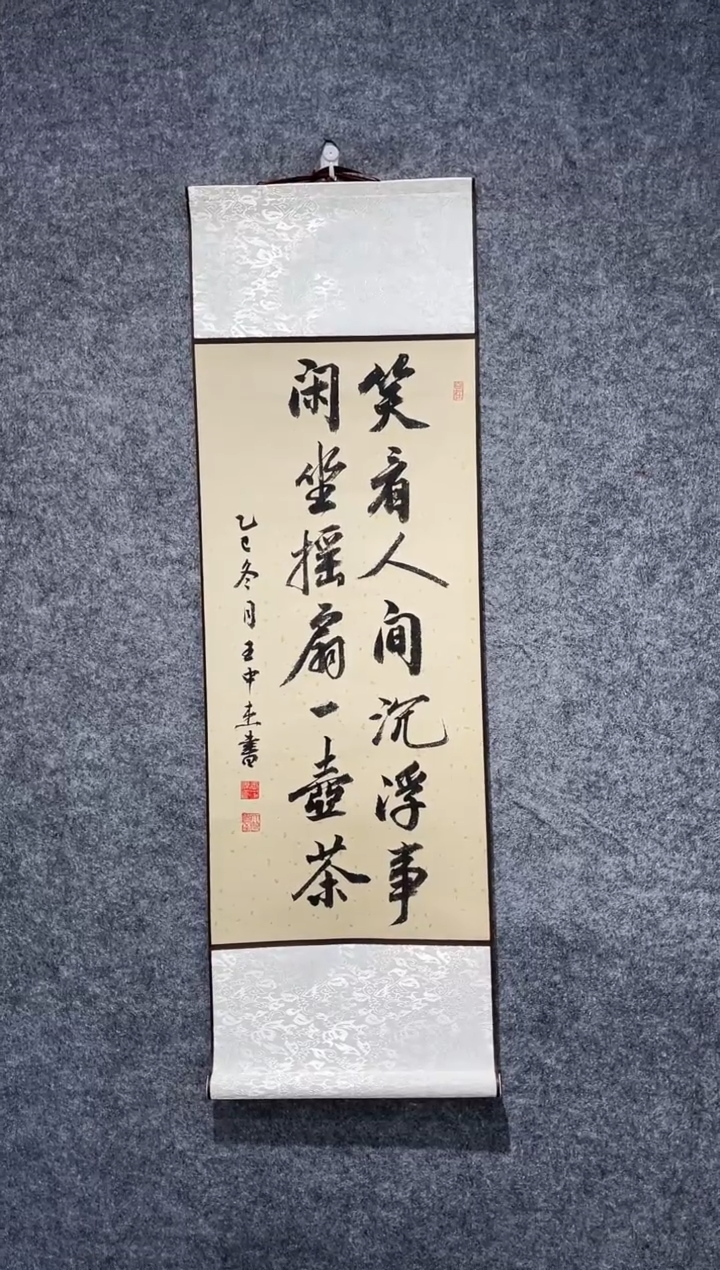 笑看人间沉浮事
闲坐摇扇一壶茶
乙巳冬月王中杰書